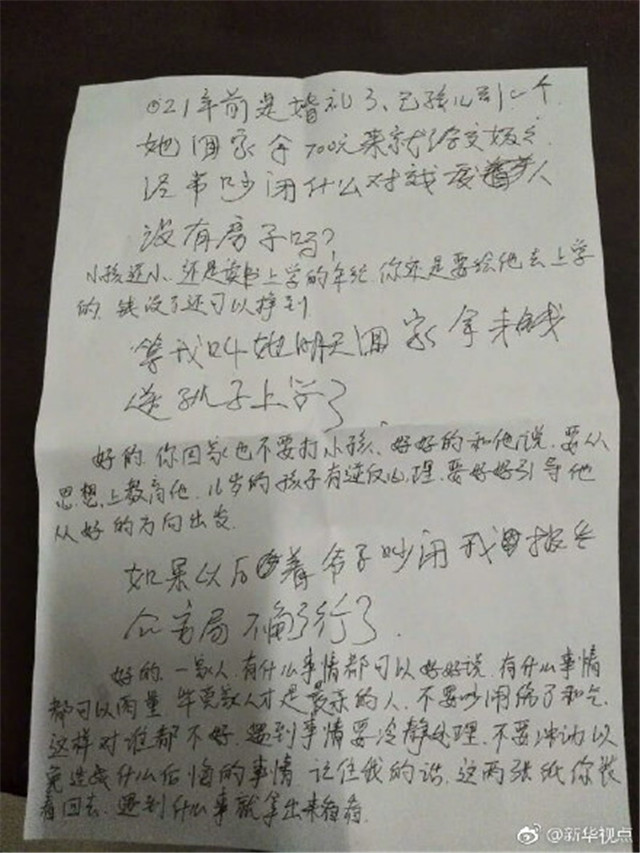 21年前是婚礼了、已孩儿到一个
她回家拿700元来就给交
经常吵闹什么对我
没有房子吗?
小孩还小、还是读书上学的年纪.你还是要给他去上学
的.钱没了还可以挣到.
等我叫她明天回家拿来钱
送孙子上学了
好的.你回家也不要打小孩、好好的和他说.要从
思想上教育他.16岁的孩子有逆反心理.要好好引导他
从好的方向出发.
如果以后 着 子吵闹我 报告
公安局 不 行了.
好的.一家人.有什么事情都可以好好说.有什么事情
都可以商量 毕竟家人才是最亲的人.不要吵闹伤了和气.
这样对谁都不好.遇到事情要冷静处理.不要冲动以
免造成什么后悔的事情 记住我的话.这两张纸你装
着回去.遇到什么事就拿出来看看.
@新华视点